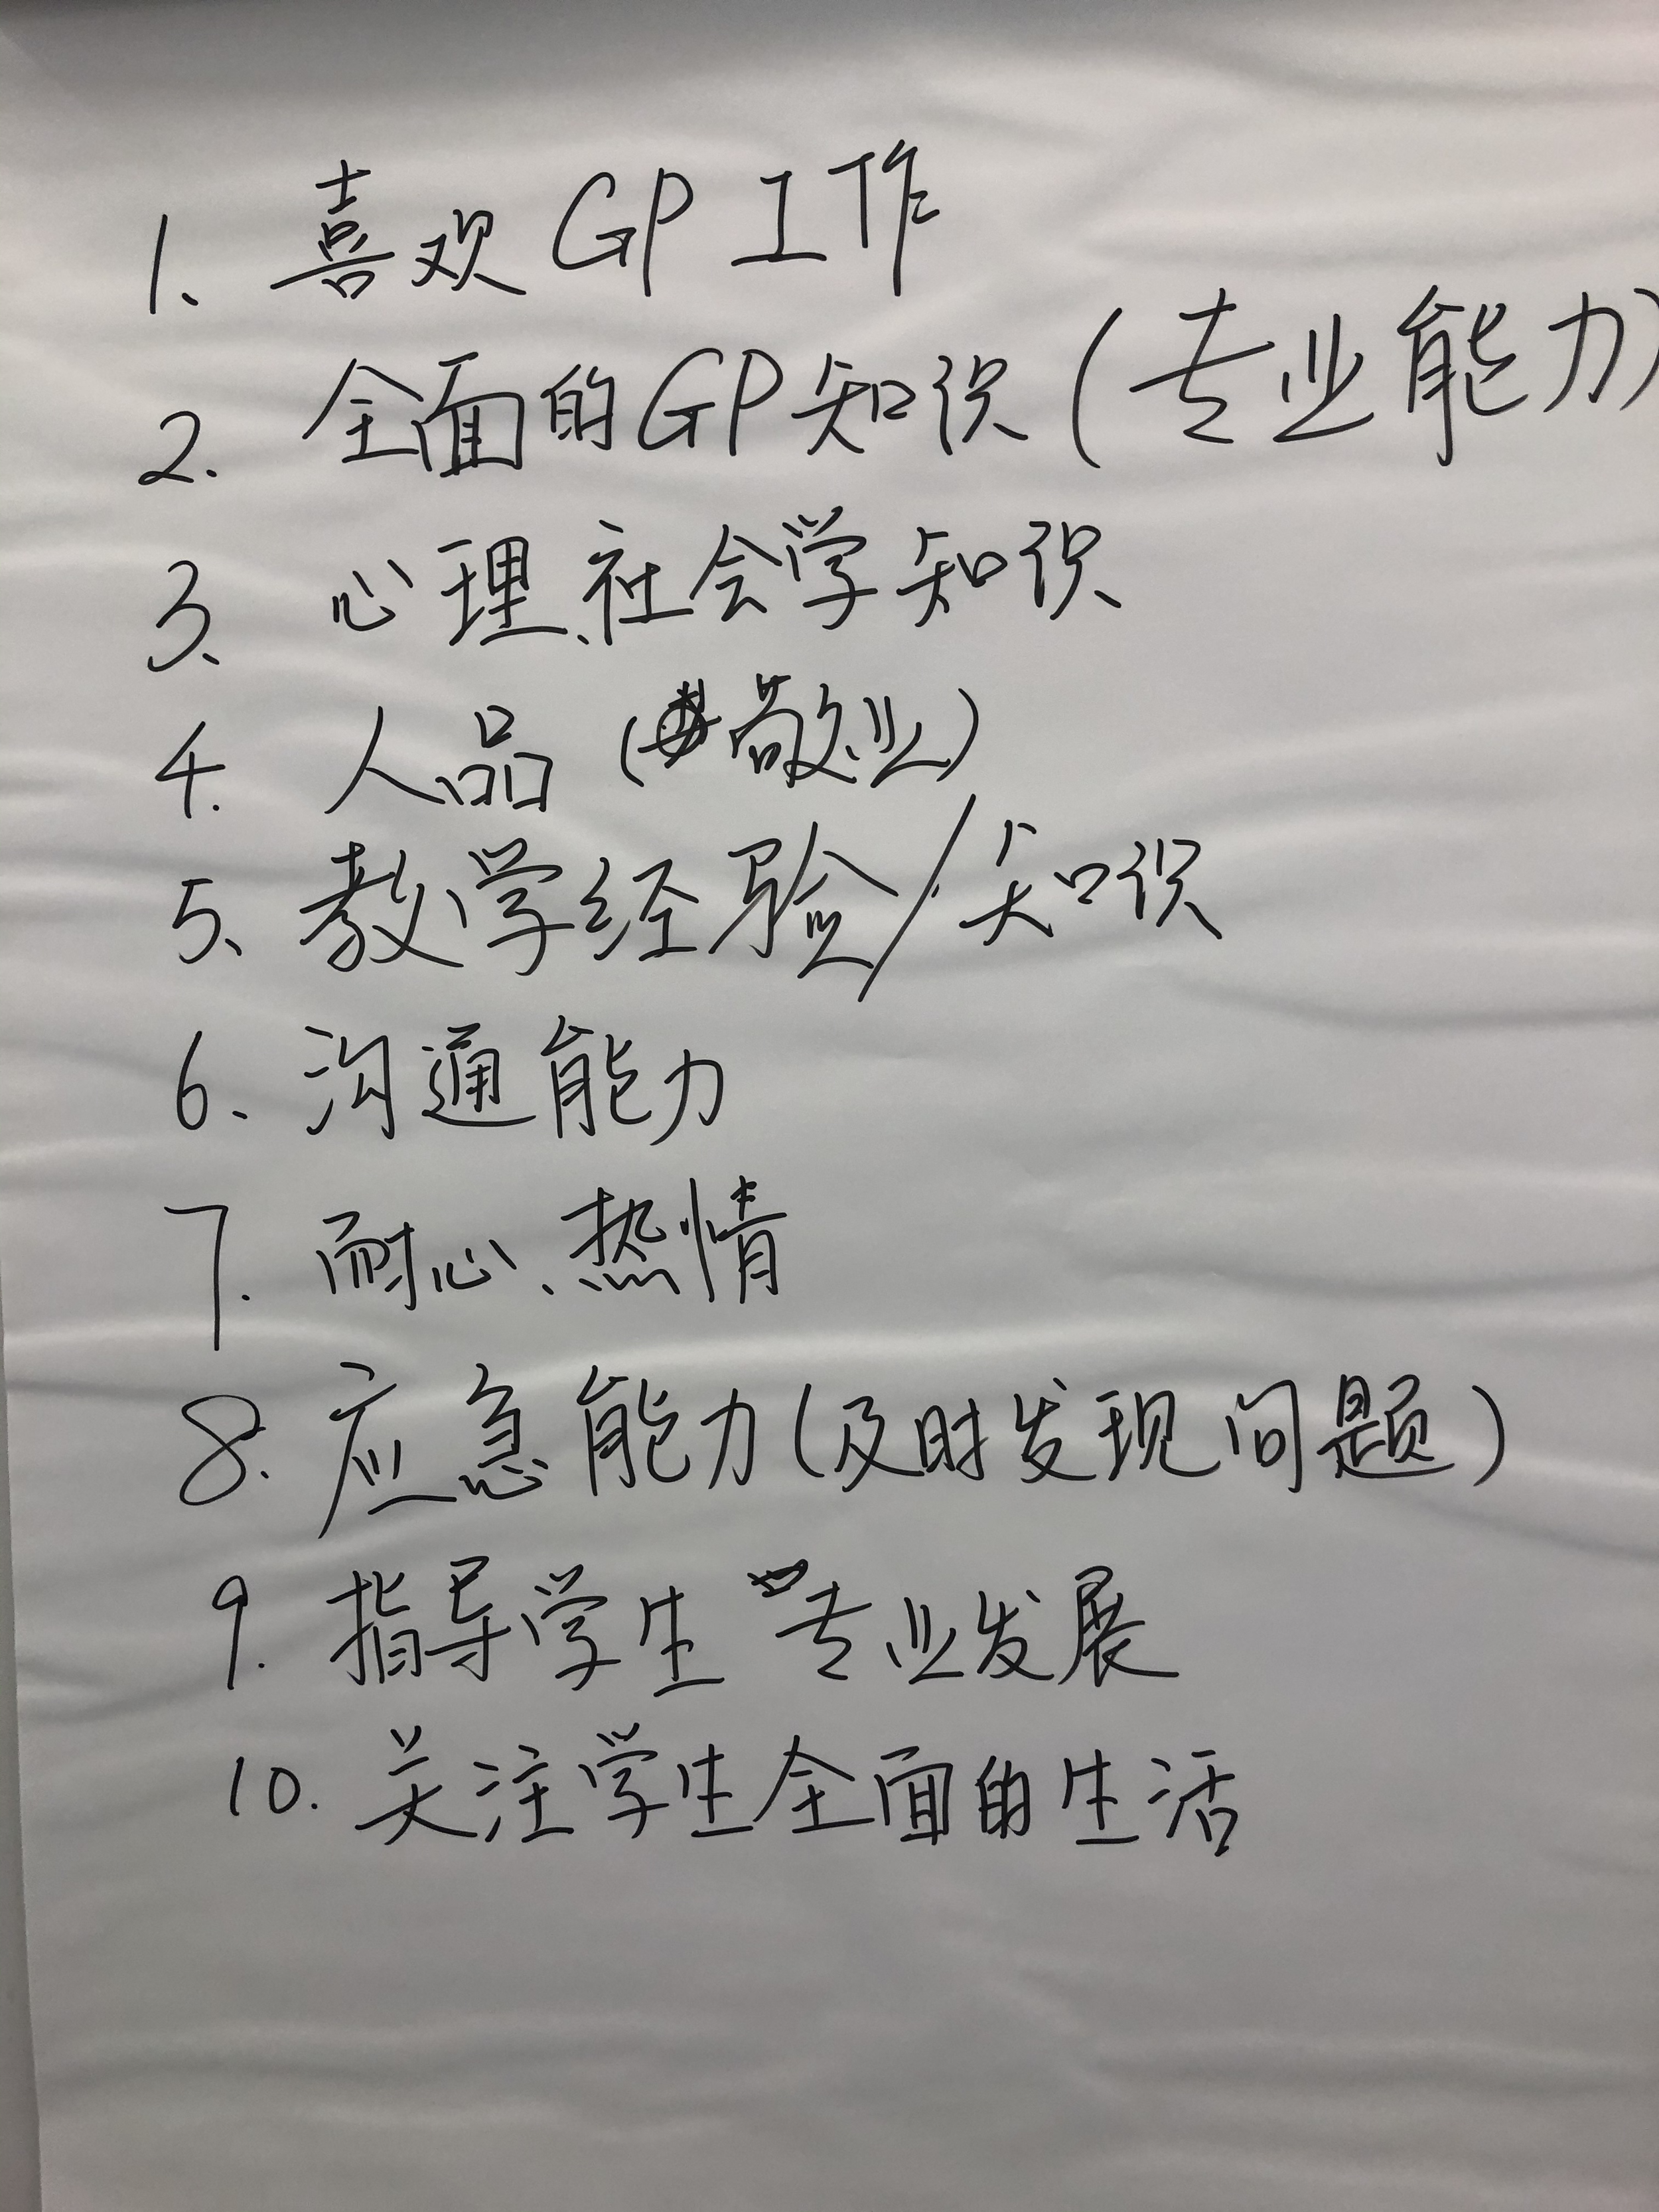 1、喜欢GP工作
2. 全面的GP知识(专业能力)
3、心理、社会学知识
4. 人品(敬业)
5、教学经验/知识
6、沟通能力
7. 耐心、热情
8. 应急能力(及时发现问题)
9. 指导学生专业发展
10. 关注学生全面的生活